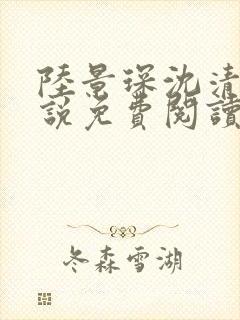 陸景琛沈清
說免費閱讀
冬森雪湖